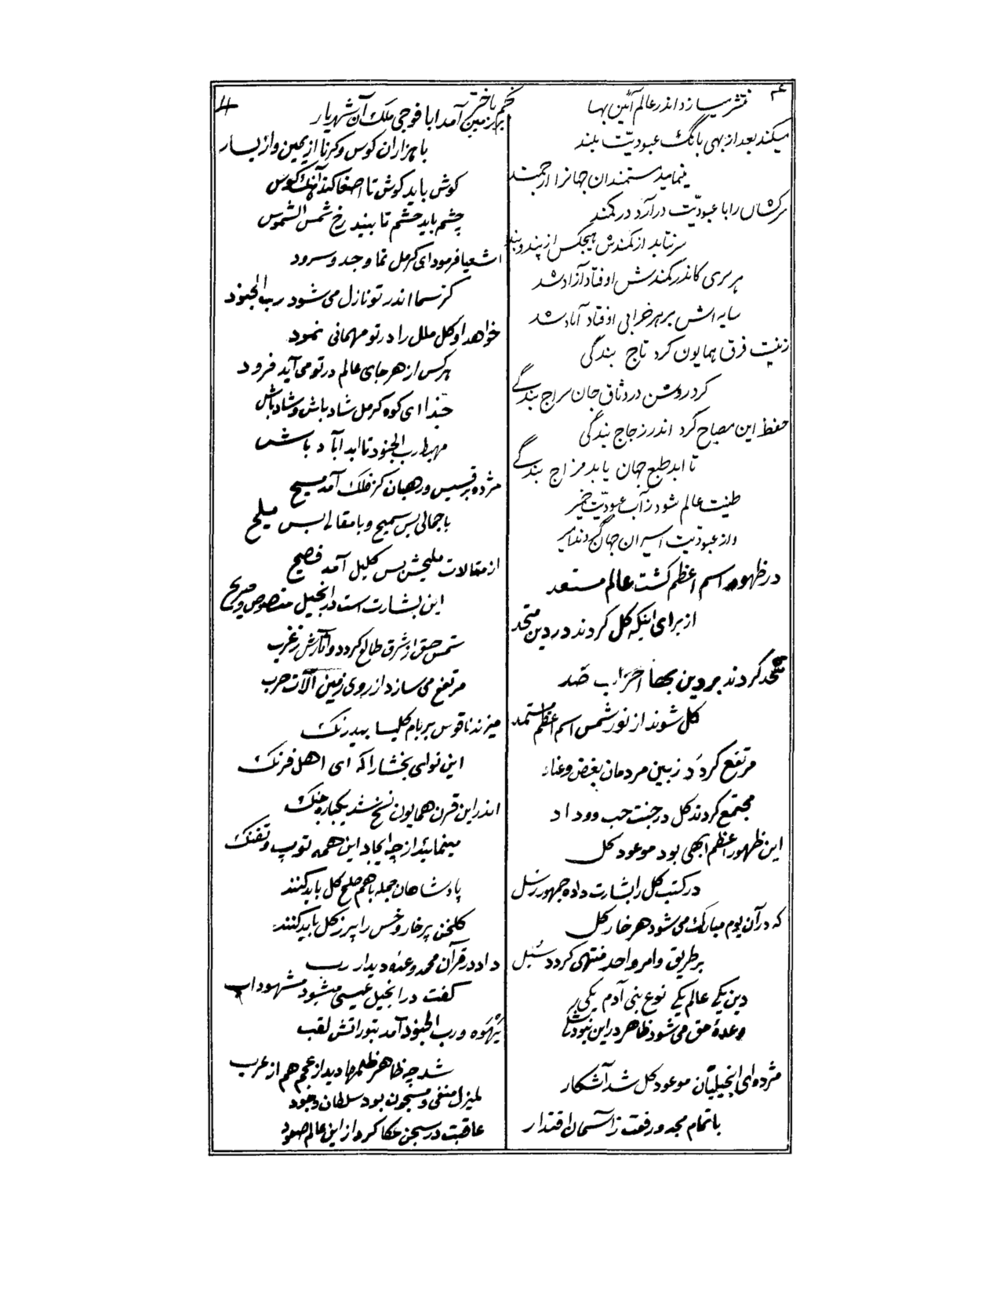 منتشر سازد اندر عالم آئین بها
میکند بعد از بهی بانگ عبودیّت بلند
مینماید مستمندان جهانرا ارجمند
سرکشان را با عبودیّت در آرد در کمند
سر نتابد از کمندش هیچکس از پند و بند
هر سری کاندر کمندش اوفتاد آزاد شد
سایه اش بر هر خرابی اوفتاد آباد شد
زینت فرق همایون کرد تاج بندگی
کرد روشن در وثاق جان سراج بندگی
حفظ این مصباح کرد اندر زجاج بندگی
تا ابد طبع جهان یابد مزاج بندگی
طینت عالم شود ز آب عبودیّت خمیر
واز عبودیت اسیران جهان گردند امیر
در ظهور اسم اعظم گشت عالم مستعد
از برای اینکه کل گردند در دین متحد
متحد گردند بر دین بها احزاب ضد
کل شوند از نور شمس اسم اعظم مستمد
مرتفع گردد ز بین مردمان بغض و عناد
مجتمع گردند کل در جنت حب و وداد
این ظهور اعظم ابهی بود موعود کل
در کتب کل را بشارت داده جمهور رسل
که در آن یوم مبارک می شود هر خار گل
بر طریق و امر واحد منتهی گردد سبل
دین یکی عالم یکی نوع بنی آدم یکی
وعدهٔ حق می شود ظاهر در این نبود شکی
مژده ای انجیلیان موعود کل شد آشکار
با تمام مجد و رفعت ز آسمان اقتدار
بر زمین آمد ابا فوجی ملک آن شهریار
با هزاران کوس و کرنا از یمین و از یسار
گوش باید گوش تا اصغا کند آهنگ کوس
چشم باید چشم تا بیند رخ شمس الشموس
اشعیا فرمود ای کرمل نما وجد و سرود
کز سما اندر تو نازل می شود رب الجنود
خواهد او کل ملل را در تو مهمانی نمود
هر کس از هر جای عالم در تو می آید فرود
حبّذا ای کوه کرمل شاد باش و شاد باش
مهبط رب الجنود تا ابد آباد باش
مژده بر قسیس و رهبان کز فلک آمد مسیح
با جمالی بس سمیح و با مقالی بس ملیح
از مقالات ملیحش بس کلیل آمد فصیح
این بشارت است در انجیل منصوص و صریح
شمس حق از شرق طالع گردد و آثارش ز غرب
مرتفع می سازد از روی زمین آلات حرب
میزند ناقوس بر بام کلیسا بیدرنگ
این نوای بخشارا که ای اهل فرنگ
اندر این قرن همایون نسخ شد یکباره جنگ
مینمائید از چه ایجاد این همه توپ و تفنگ
پادشاهان جمله باهم صلح کل باید کنند
گلخن پر خار و خس را پر ز گل باید کنند
داد در قرآن محمد وعده دیدار رب
گفت در انجیل عیسی میشود مشهود اب
یَهْوَه و رب الجنود آمد بتوراتش لقب
شد چه ظاهر ظلمها دید از عجم هم از عرب
لم یزل منفی و مسجون بود سلطان وجود
عاقبت در سجن عکا کرد از این عالم صعود